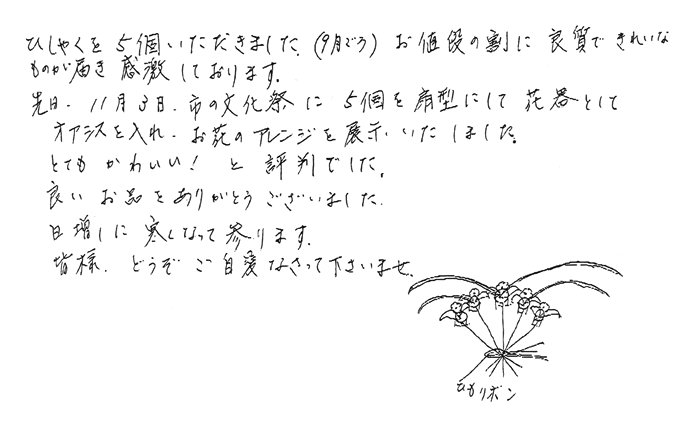 ひしゃくを5個いただきました。(9月ごろ) お値段の割に良質できれいな
ものが届き感激しております。
先日、11月3日、市の文化祭に5個を扇型にして花器として
オアシスを入れ、お花のアレンジを展示いたしました。
とてもかわいい!と評判でした。
良いお品をありがとうございました。
日増しに寒くなって参ります。
皆様、どうぞご自愛なさって下さいませ。
ひもリボン